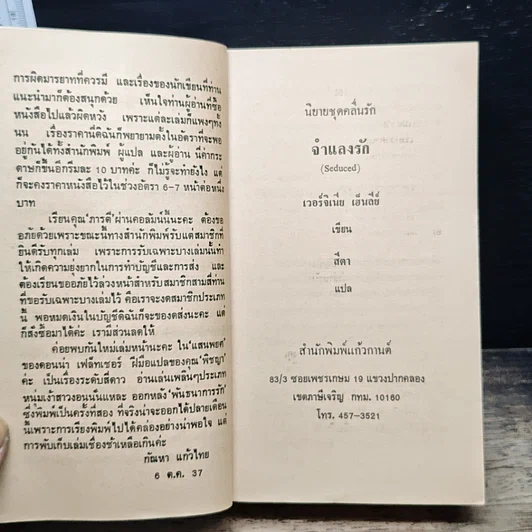 การผิดมารยาทที่ควรมี และเรื่องของนักเขียนที่ท่าน
แนะนำมาก็ต้องสนุกด้วย เห็นใจท่านผู้อ่านที่ซื้อ
หนังสือไปแล้วผิดหวัง เพราะแต่ละเล่มก็แพงๆทั้ง
นั้น เรื่องราคานี่ดิฉันก็พยายามตั้งในอัตราที่จะพอ
อยู่กันได้ทั้งสำนักพิมพ์ ผู้แปล และผู้อ่าน นี่ค่ากระ
ดาษก็ขึ้นอีกรีมละ 10 บาทค่ะ ก็ไม่รู้จะทำยังไง แต่
ก็จะคงราคาหนังสือไว้ในช่วงอัตรา 6-7 หน้าต่อหนึ่ง
บาท
เรียนคุณ'ภารดี'ผ่านคอลัมน์นี้นะคะ ต้องขอ
อภัยด้วยเพราะขณะนี้ทางสำนักพิมพ์รับแต่สมาชิกที่
ยินดีรับทุกเล่ม เพราะการรับเฉพาะบางเล่มนั้นทำ
ให้เกิดความยุ่งยากในการทำบัญชีและการส่ง และ
ต้องเรียนขออภัยไว้ล่วงหน้าสำหรับสมาชิกสามสี่ท่าน
ที่ขอรับเฉพาะบางเล่มไว้ คือเราจะงดสมาชิกประเภท
นี้ พอหมดเงินในบัญชีดิฉันก็จะงดส่งนะคะ แต่
ก็สั่งซื้อมาได้ค่ะ เรามีส่วนลดให้
ค่อยพบกันใหม่เล่มหน้านะคะ ใน'แสนพยศ'
ของดอนน่า เฟล็ทเชอร์ ฝีมือแปลของคุณ'พิชญา'
ค่ะ เป็นเรื่องระดับสี่ดาว อ่านเล่นเพลินๆประเภท
หนุ่มเง้าสาวงอนนั่นแหละ ออกหลัง'พันธนาการรัก'
ซึ่งพิมพ์เป็นครั้งที่สอง ที่จริงน่าจะออกได้ปลายเดือน
นี้เพราะการเรียงพิมพ์ไปได้คล่องอย่างน่าพอใจ แต่
การพับเก็บเล่มเชื่องช้าเหลือเกินค่ะ
กัณหา แก้วไทย
6 ต.ค. 37
นิยายชุดคลื่นรัก
จำแลงรัก
(Seduced)
เวอร์จิเนีย เฮ็นลีย์
เขียน
สีตา
แปล
สำนักพิมพ์แก้วกานต์
83/3 ซอยเพชรเกษม 19 แขวงปากคลอง
เขตภาษีเจริญ กทม. 10160
โทร. 457-3521